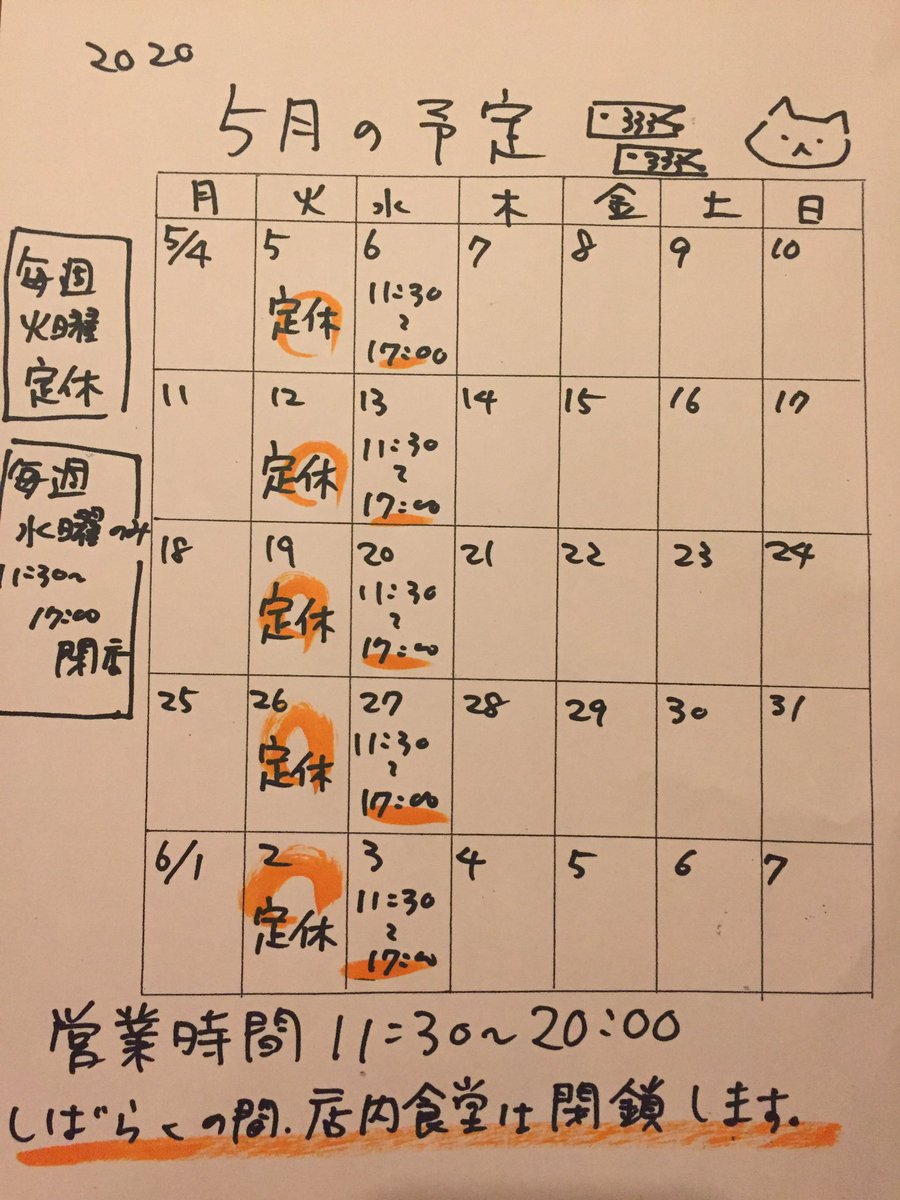 2020
5月の予定
月 火 水 木 金 土 日
毎週
火曜
定休
毎週
水曜のみ
11:30〜
17:00
閉店
5/4 5 6 7 8 9 10
定休 11:30
〜
17:00
11 12 13 14 15 16 17
定休 11:30
〜
17:00
18 19 20 21 22 23 24
定休 11:30
〜
17:00
25 26 27 28 29 30 31
定休 11:30
〜
17:00
6/1 2 3 4 5 6 7
定休 11:30
〜
17:00
営業時間 11:30〜20:00
しばらくの間、店内食堂は閉鎖します。